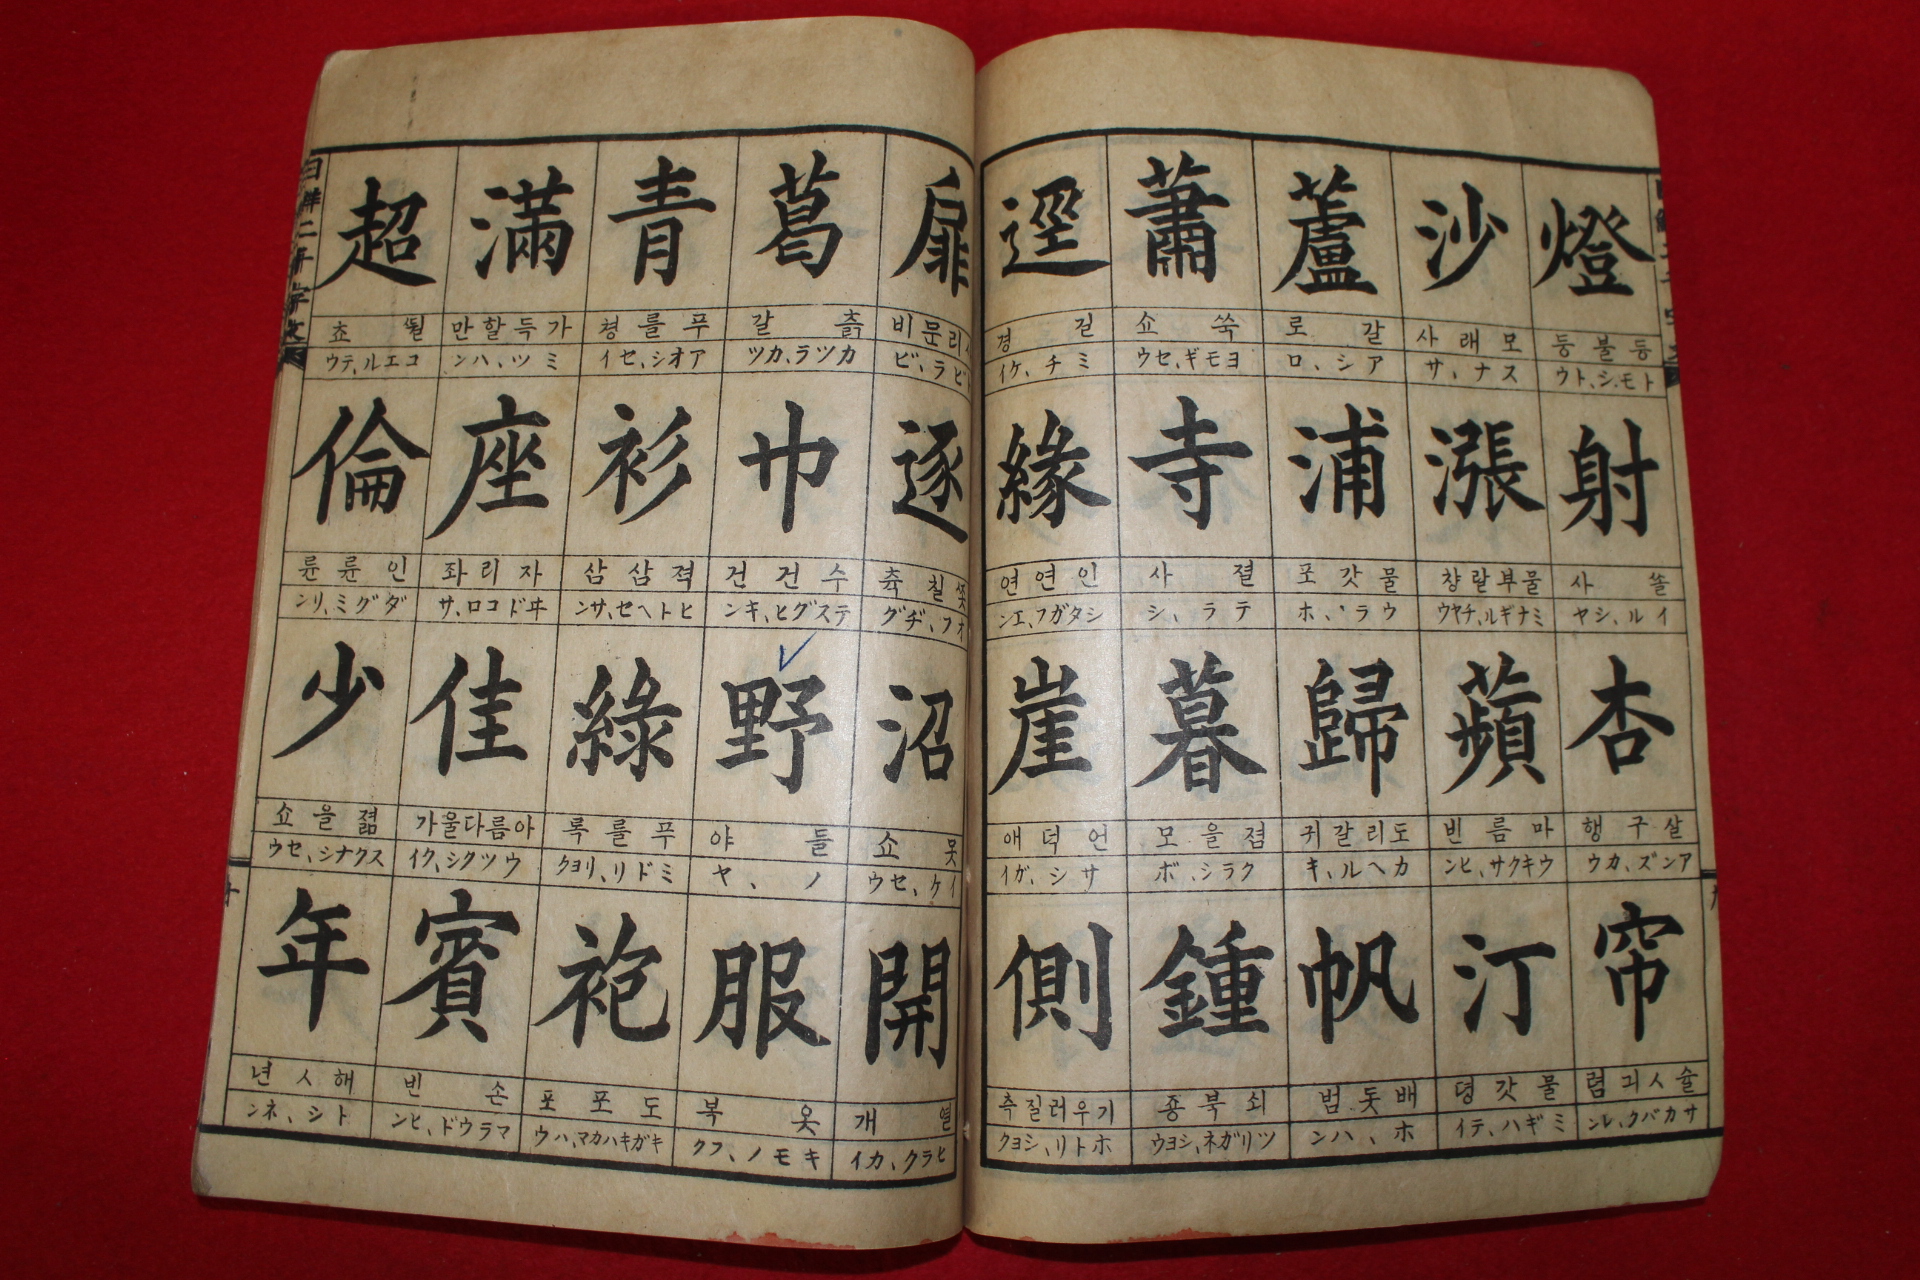 燈
등불등
トモシ、トウ
射
쏠사
イル、シヤ
杏
살구행
アンズ、カウ
帘
술ㅅ긔렴
サカバク、レン
沙
모래사
スナ、サ
漲
물부랄챵
ミナギル、チヤウ
蘋
마름빈
ウキクサ、ヒン
汀
물갓뎡
ミギハ、テイ
蘆
갈로
アシ、ロ
浦
물갓포
ウラ、ホ
歸
도리갈귀
カヘル、キ
帆
배돗범
ホ、ハン
蕭
쑥쇼
ヨモギ、セウ
寺
졀사
テラ、シ
暮
졈을모
クラシ、ボ
鍾
쇠북죵
ツリガネ、シヨウ
逕
길경
ミチ、ケイ
緣
인연연
シタガフ、エン
崖
언덕애
サシ、ガイ
側
기우러질측
ホトリ、シヨク
扉
리문비
ビラ、ビ
逐
쫏칠츅
オフ、ヂグ
沼
못쇼
イケ、セウ
開
열개
ヒラク、カイ
葛
츩갈
カツラ、カツ
巾
수건건
テスグヒ、キン
野
들야
ノ、ヤ
服
옷복
キモノ、フク
靑
푸를쳥
アオシ、セイ
衫
젹삼삼
ヒトヘセ、サン
綠
푸를록
ミドリ、リヨク
袍
도포포
キガキハカマ、ハウ
滿
가득할만
ミツ、ハン
座
자리좌
ヰドコロ、サ
佳
아름다울가
ウツクシ、クイ
賓
손빈
マラウド、ヒン
超
뛸쵸
コエル、テウ
倫
인륜륜
ダグミ、リン
少
졂을쇼
スクナシ、セウ
年
해ㅅ년
トシ、ネン
日鮮二千字文